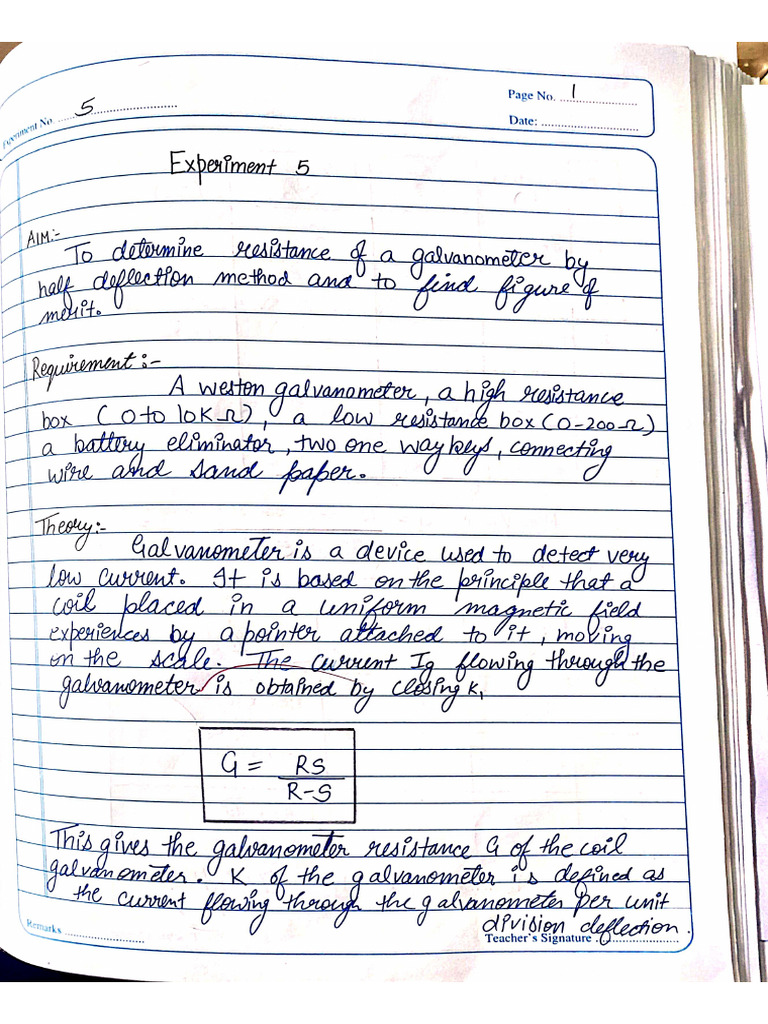 Experiment No. 5
Page No. 1
Date:
Experiment 5
AIM:-
To determine resistance of a galvanometer by
half deflection method and to find figure of
merit.
Requirement:-
A weston galvanometer, a high resistance
box (0 to 10K Ω), a low resistance box (0-200 Ω)
a battery eliminator, two one way keys, connecting
wire and sand paper.
Theory:-
Galvanometer is a device used to detect very
low current. It is based on the principle that a
coil placed in a uniform magnetic field
experiences by a pointer attached to it, moving
on the scale. The current Ig flowing through the
galvanometer is obtained by closing K₁
G = RS
R-S
This gives the galvanometer resistance G of the coil
galvanometer. K of the galvanometer is defined as
the current flowing through the galvanometer per unit
division deflection.
Remarks
Teacher's Signature